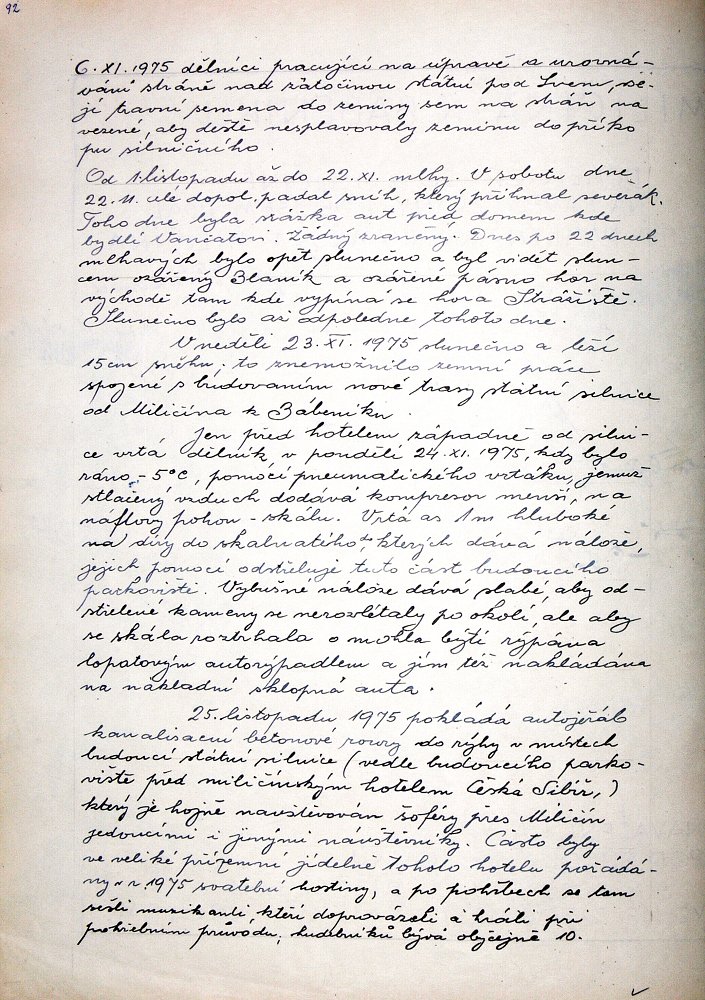 92
6. XI. 1975 dělníci pracující na úpravě a urovná-
vání stráně nad zátočinou státní pod Lvem, se-
jí travní semena do zeminy sem na stráň na
vezené, aby deště nesplavovaly zeminu do příko
pu silničního.
Od 1. listopadu až do 22. XI. mlhy. V sobotu dne
22. 11. celé dopol. padal sníh, který přihnal severák.
Toho dne byla srážka aut před domem kde
bydlí Vančatovi. Žádný zraněný. Dnes po 22 dnech
mlhavých bylo opět slunečno a byl vidět slun-
cem ozářený Blaník a ozářené pásmo hor na
východě tam kde vypíná se hora Strážiště.
Slunečno bylo až odpoledne tohoto dne.
V neděli 23. XI. 1975 slunečno a leží
15 cm sněhu; to znemožnilo zemní práce
spojené s budovaním nové trasy státní silnice
od Miličína k Zábeníku.
Jen před hotelem západně od silni-
ce vrtá dělník v pondělí 24. XI. 1975, kdy bylo
ráno -5°C, pomocí pneumatického vrtáku, jemuž
stlačený vzduch dodává kompresor menší, na
naftový pohon - skálu. Vrtá as 1 m hluboké
na díry do skalnatého, kterých dává nálože,
jejich pomocí odstřeluje tuto část budoucího
parkoviště. Výbušné nálože dává slabé, aby od-
střelené kameny se nerozlétaly po okolí, ale aby
se skála roztrhala a mohla býti rýpána
lopatovým autorýpadlem a jím též nakládána
na nákladní sklopná auta.
25. listopadu 1975 pokládá autojeřáb
kanalisacní betonové roury do rýhy v místech
budoucí státní silnice (vedle budoucího parko-
viště před miličínským hotelem Česká Sibiř,)
který je hojně navštěvován šoféry přes Miličín
jedoucími i jinými návštěvníky. Často byly
ve veliké přízemní jídelně tohoto hotelu pořádá-
ny v r. 1975 svatební hostiny, a po pohřbech se tam
sešli muzikanti, kteří doprovázeli a hráli při
pohřebním průvodu, hudebníků bývá obyčejně 10.